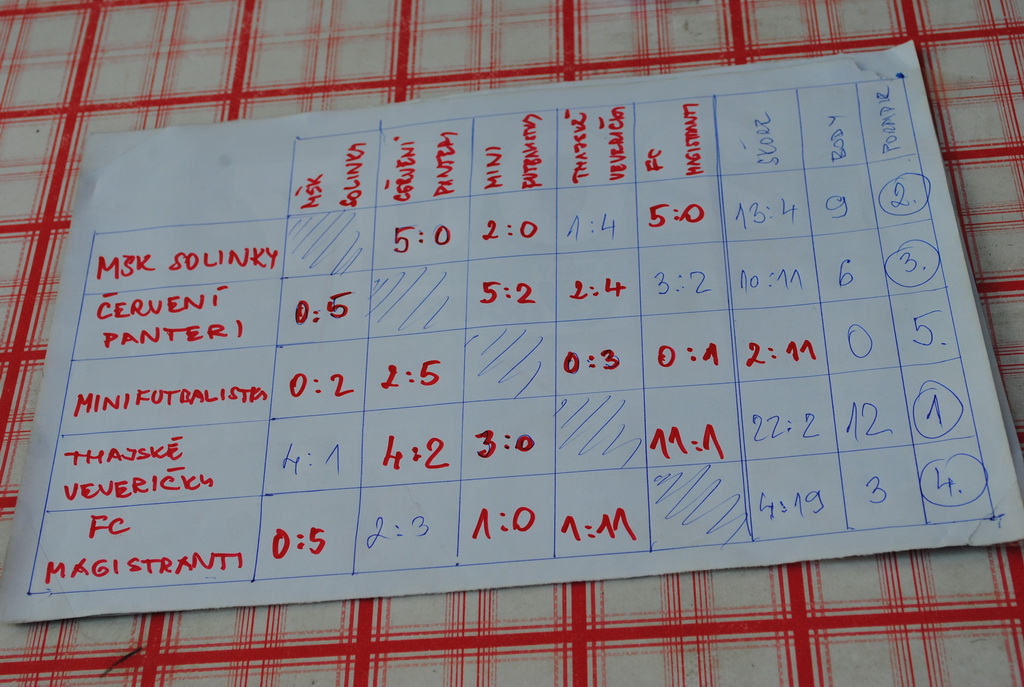 MŠK SOLINKY ČERVENÍ PANTERI MINI FUTBALISTKY THAJSKÉ VEVERIČKY FC MAGISTRANTI SKÓRE BODY PORADIE
MŠK SOLINKY 5:0 2:0 1:4 5:0 13:4 9 2.
ČERVENÍ PANTERI 0:5 5:2 2:4 3:2 10:11 6 3.
MINIFUTBALISTKY 0:2 2:5 0:3 0:1 2:11 0 5.
THAJSKÉ VEVERIČKY 4:1 4:2 3:0 11:1 22:2 12 1.
FC MAGISTRANTI 0:5 2:3 1:0 1:11 4:19 3 4.